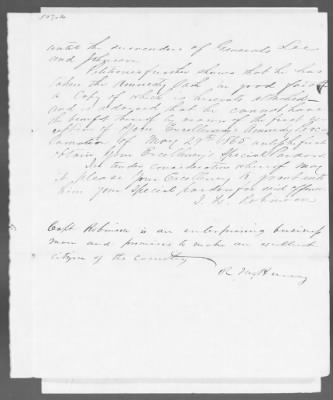 until the surrender of Generals Lee
and Johnson.
Petitioner further shows that he has
taken the Amnesty Oath in good faith
a copy of which is hereunto attached—
and is advised that he cannot have
the benefit thereof by reason of the first ex
ception of Your Excellency's Amnesty Pro
clamation of May 29th 1865 until he first
obtains your Excellency's Special Pardon
In tender consideration whereof may
it please your Excellency to grant unto
him your Special pardon for said offence
Robinson
Capt Robinson is an enterprising business
man and promises to make an excellent
citizen of the country